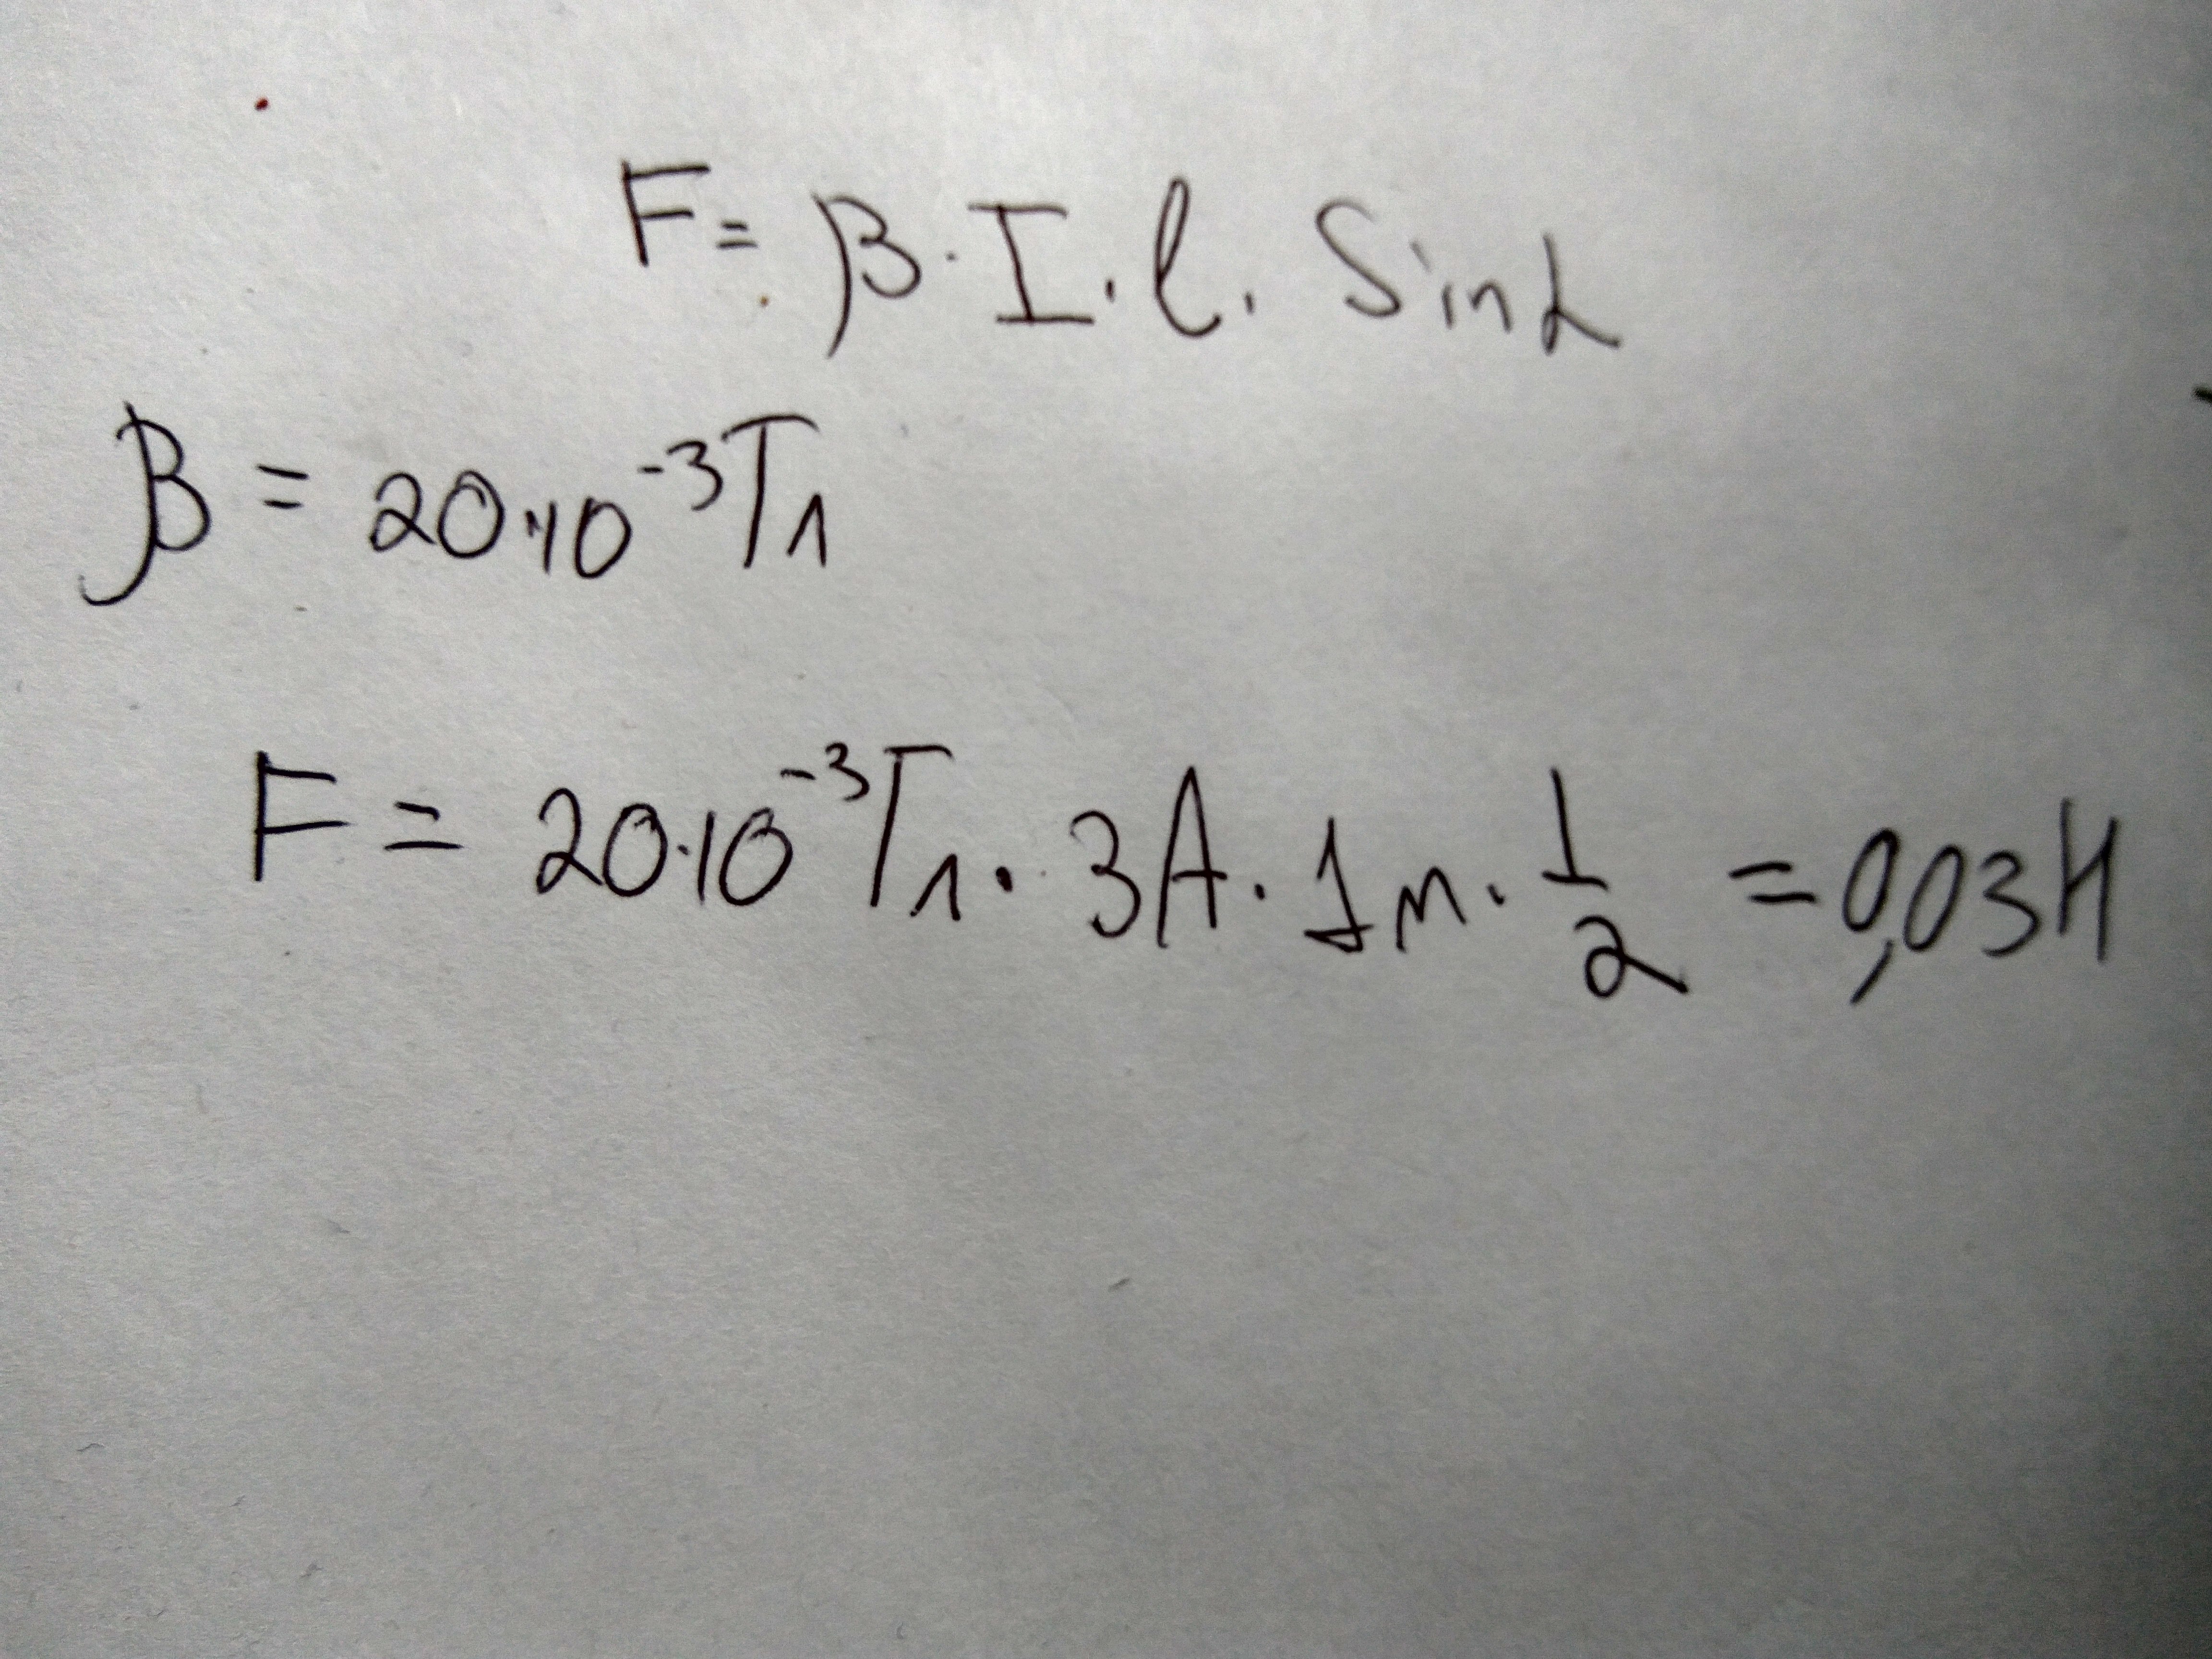 F = B · I · l · Sin α
B = 20·10⁻³Тл
F = 20·10⁻³Тл · 3А · 1м · 1/2 = 0,03Н